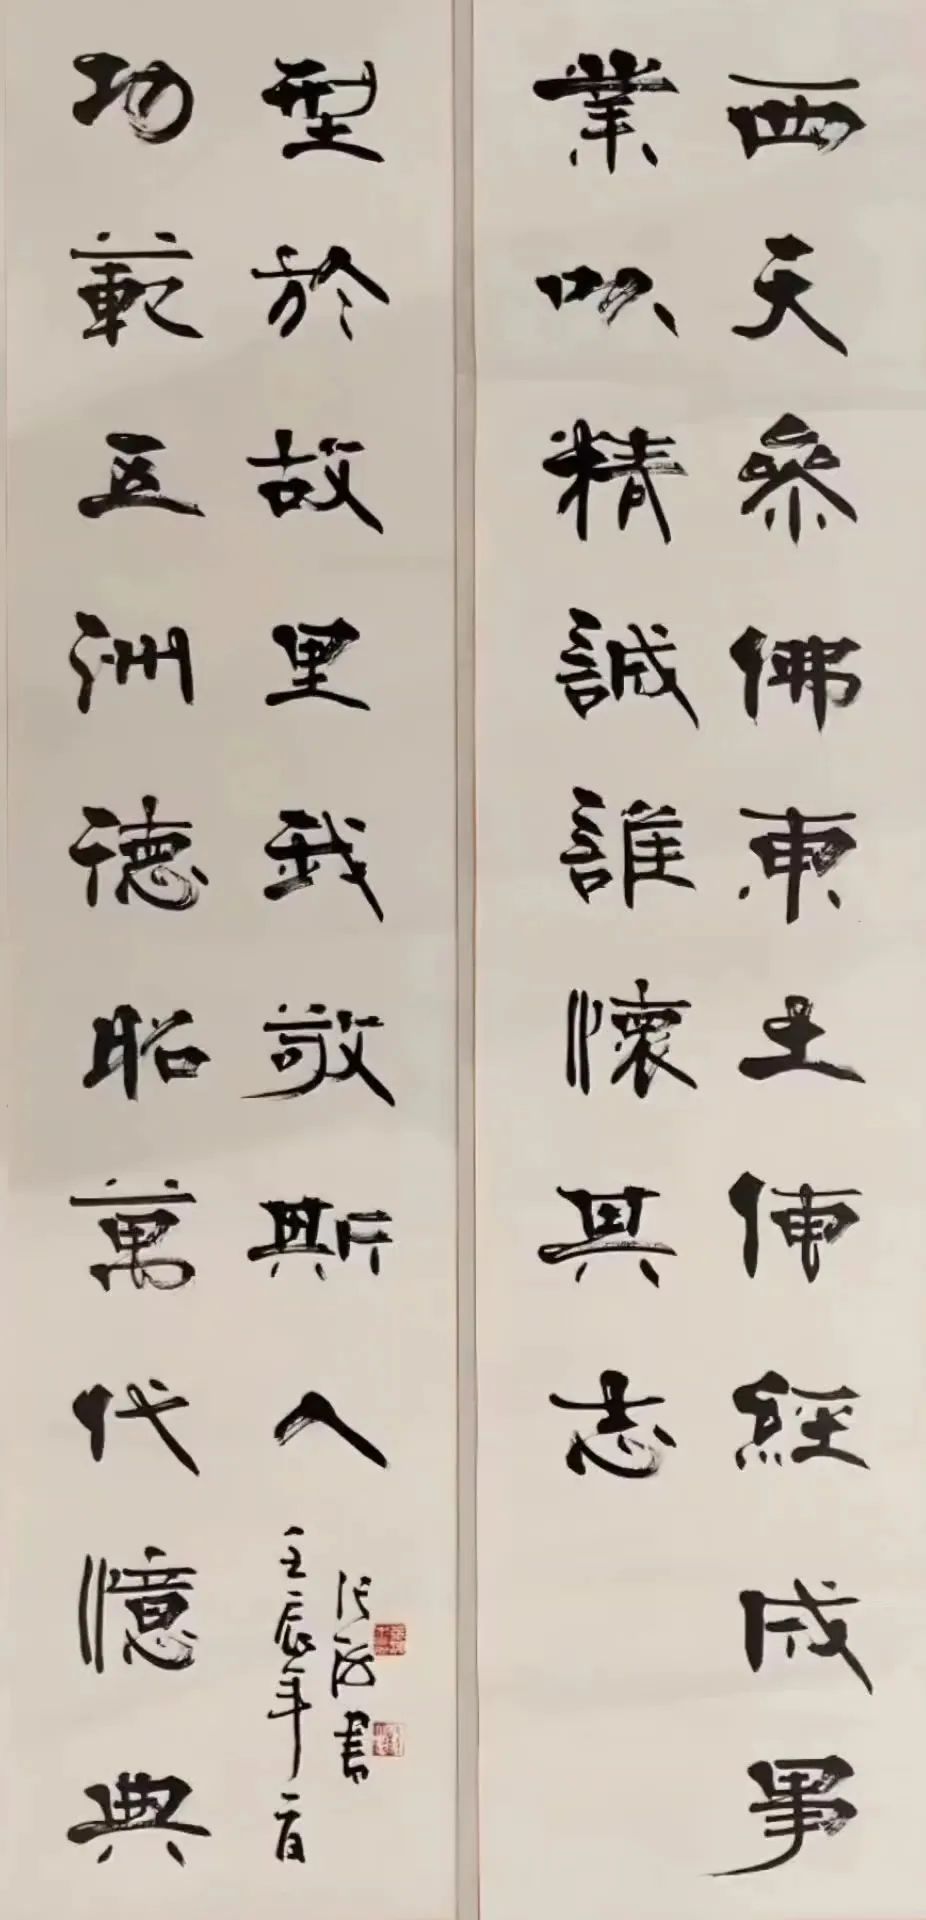 西天參佛東土傳經成事
業以精誠誰懷其志
功範五洲德昭萬代憶典
型於故里我敬斯人
壬辰年
张海書